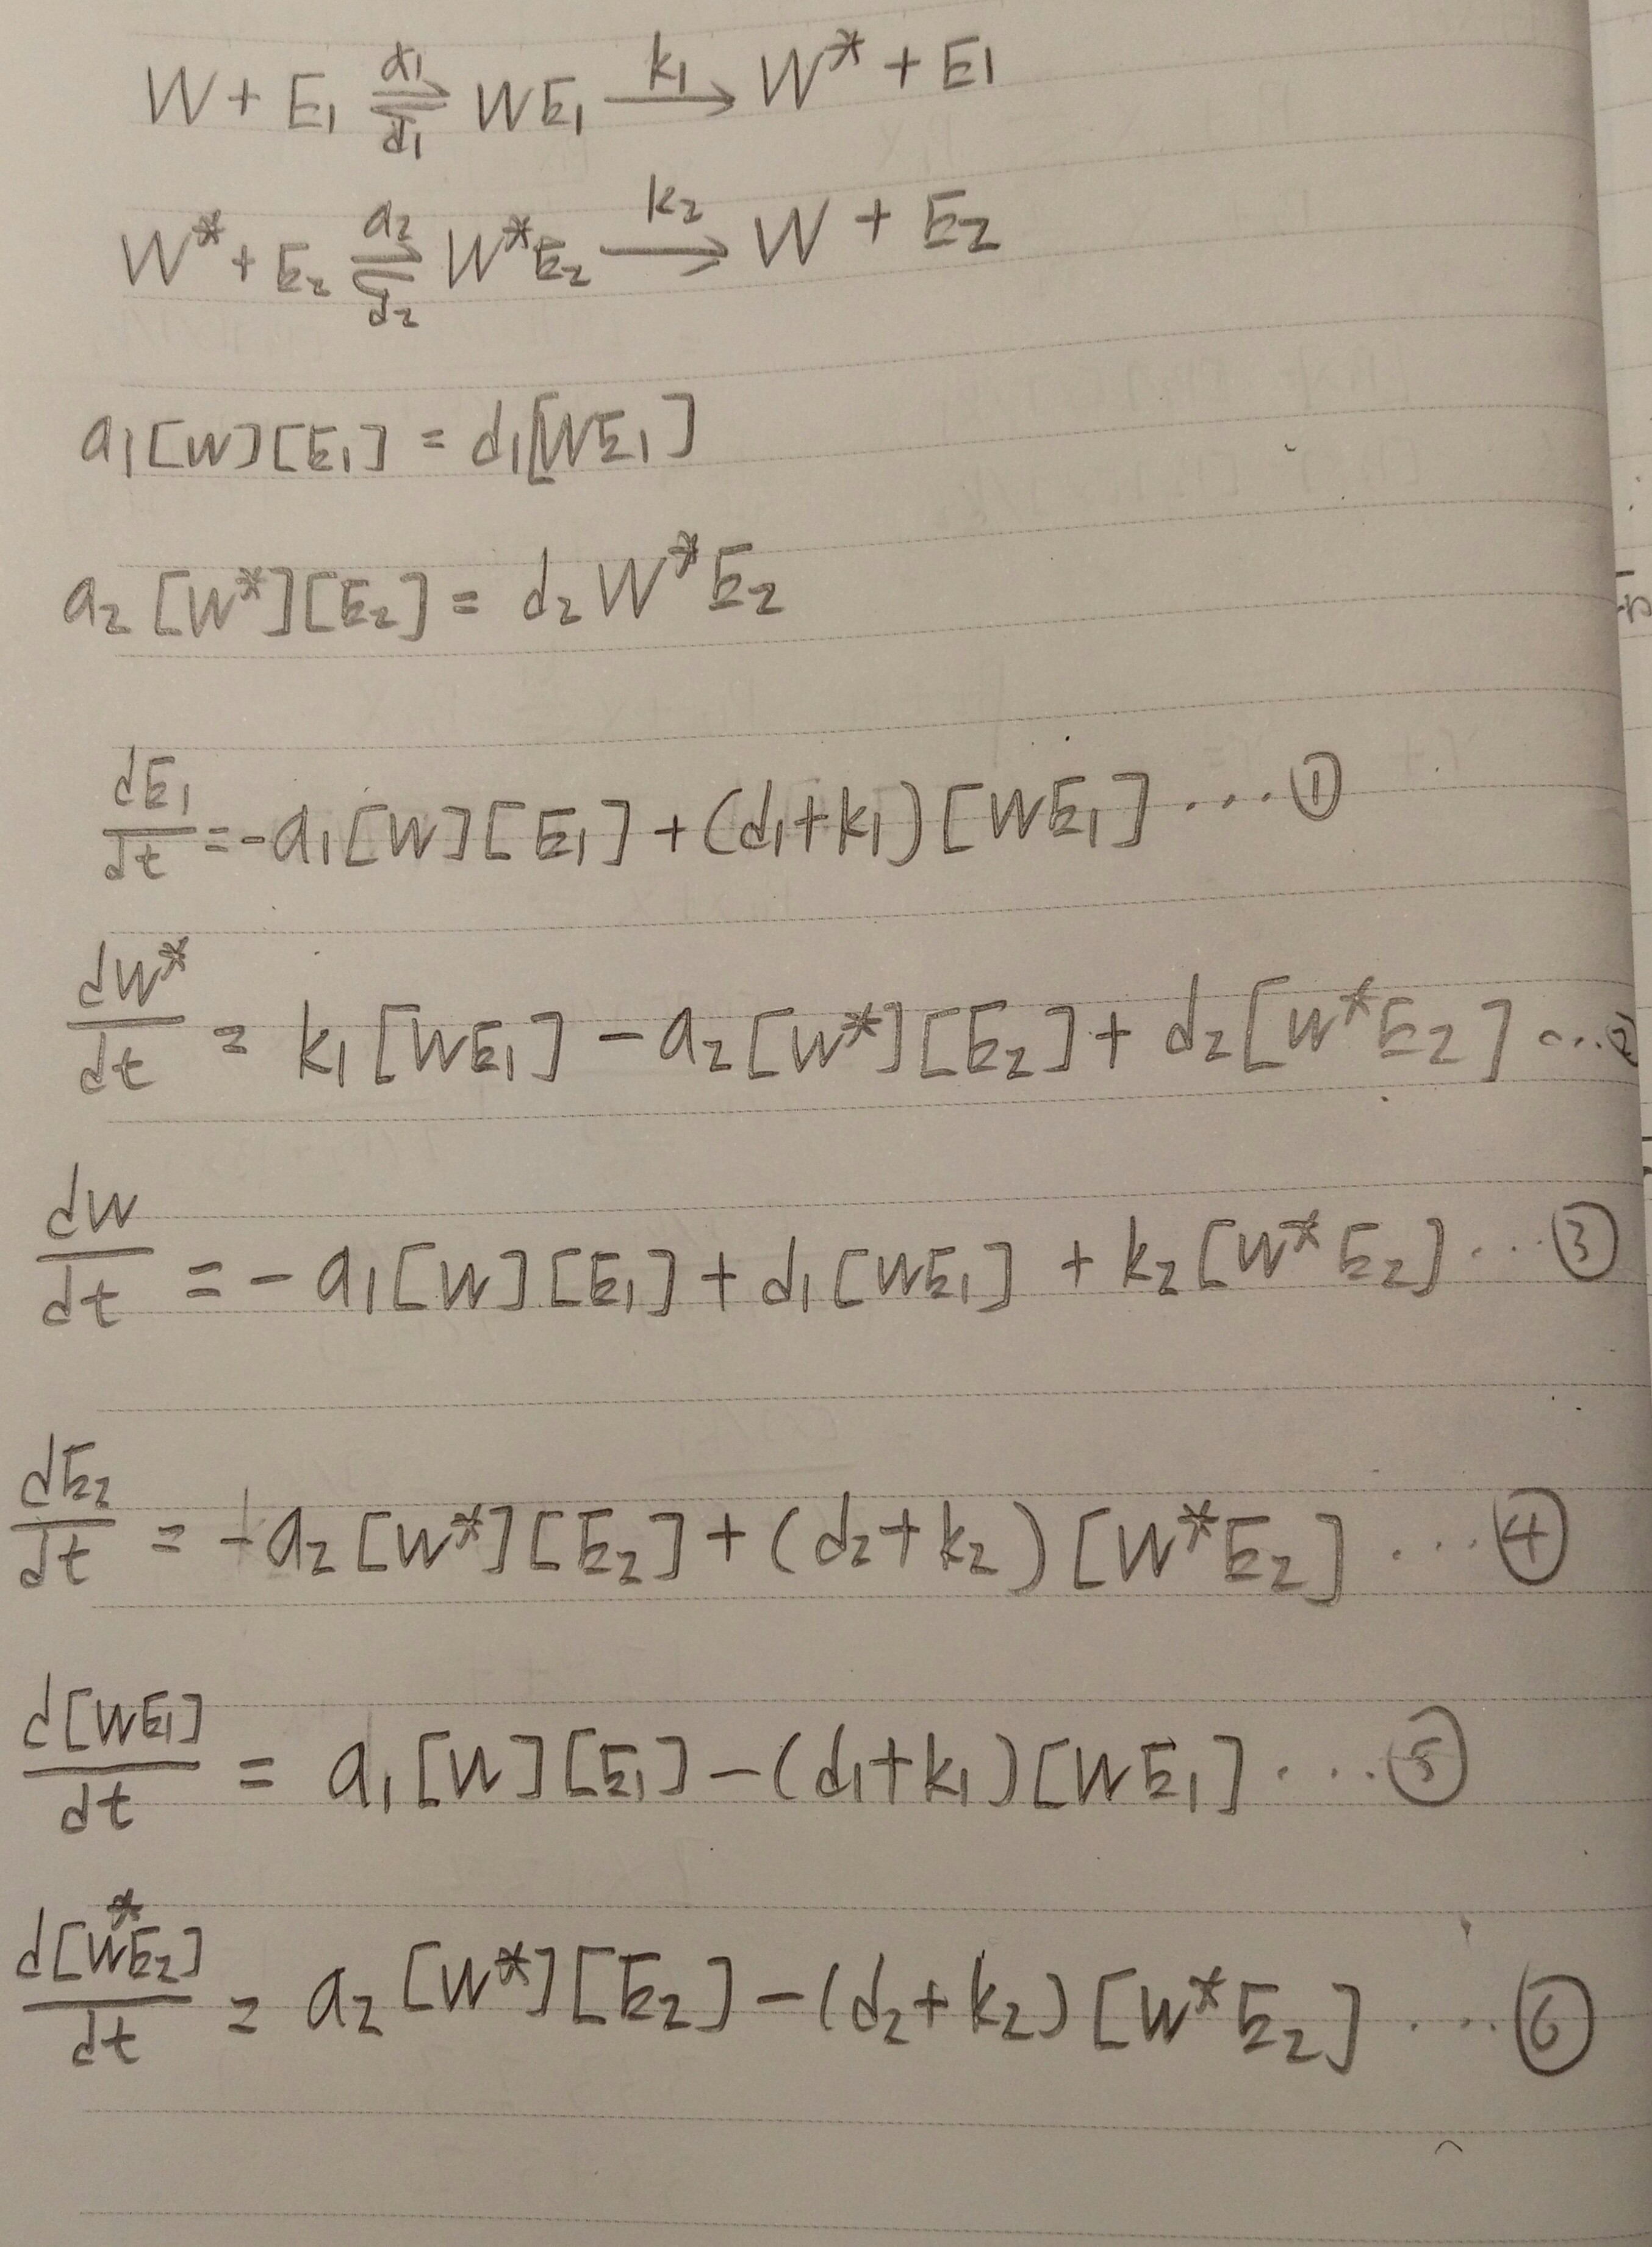 W + E₁ ⇌ WE₁ → W* + E1 (a₁, d₁, k₁)
W* + E₂ ⇌ W*E₂ → W + E₂ (a₂, d₂, k₂)
a₁[W][E₁] = d₁[WE₁]
a₂[W*][E₂] = d₂W*E₂
dE₁/dt = -a₁[W][E₁] + (d₁+k₁)[WE₁] ... ①
dW*/dt = k₁[WE₁] - a₂[W*][E₂] + d₂[W*E₂] ... ②
dW/dt = -a₁[W][E₁] + d₁[WE₁] + k₂[W*E₂] ... ③
dE₂/dt = -a₂[W*][E₂] + (d₂+k₂)[W*E₂] ... ④
d[WE₁]/dt = a₁[W][E₁] - (d₁+k₁)[WE₁] ... ⑤
d[W*E₂]/dt = a₂[W*][E₂] - (d₂+k₂)[W*E₂] ... ⑥